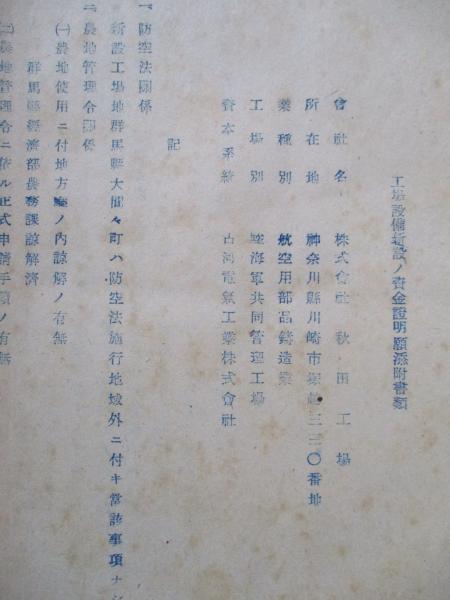 工場設備新設ノ資金證明願添附書類
會社名 株式會社秋田工場
所在地 神奈川縣川崎市 三二〇番地
業種別 航空用部品鋳造業
工場別 陸海軍共同管理工場
資本系統 古河電氣工業株式會社
記
一、防空法關係
新設工場地群馬縣大間々町ハ防空法施行地域外ニ付キ當該事項ナシ
二、農地管理令關係
(一)農地使用ニ付地方廳ノ内諒解ノ有無
群馬縣經濟部農務課諒解濟
(二)農地管理令ニ依ル正式申請手續ノ有無